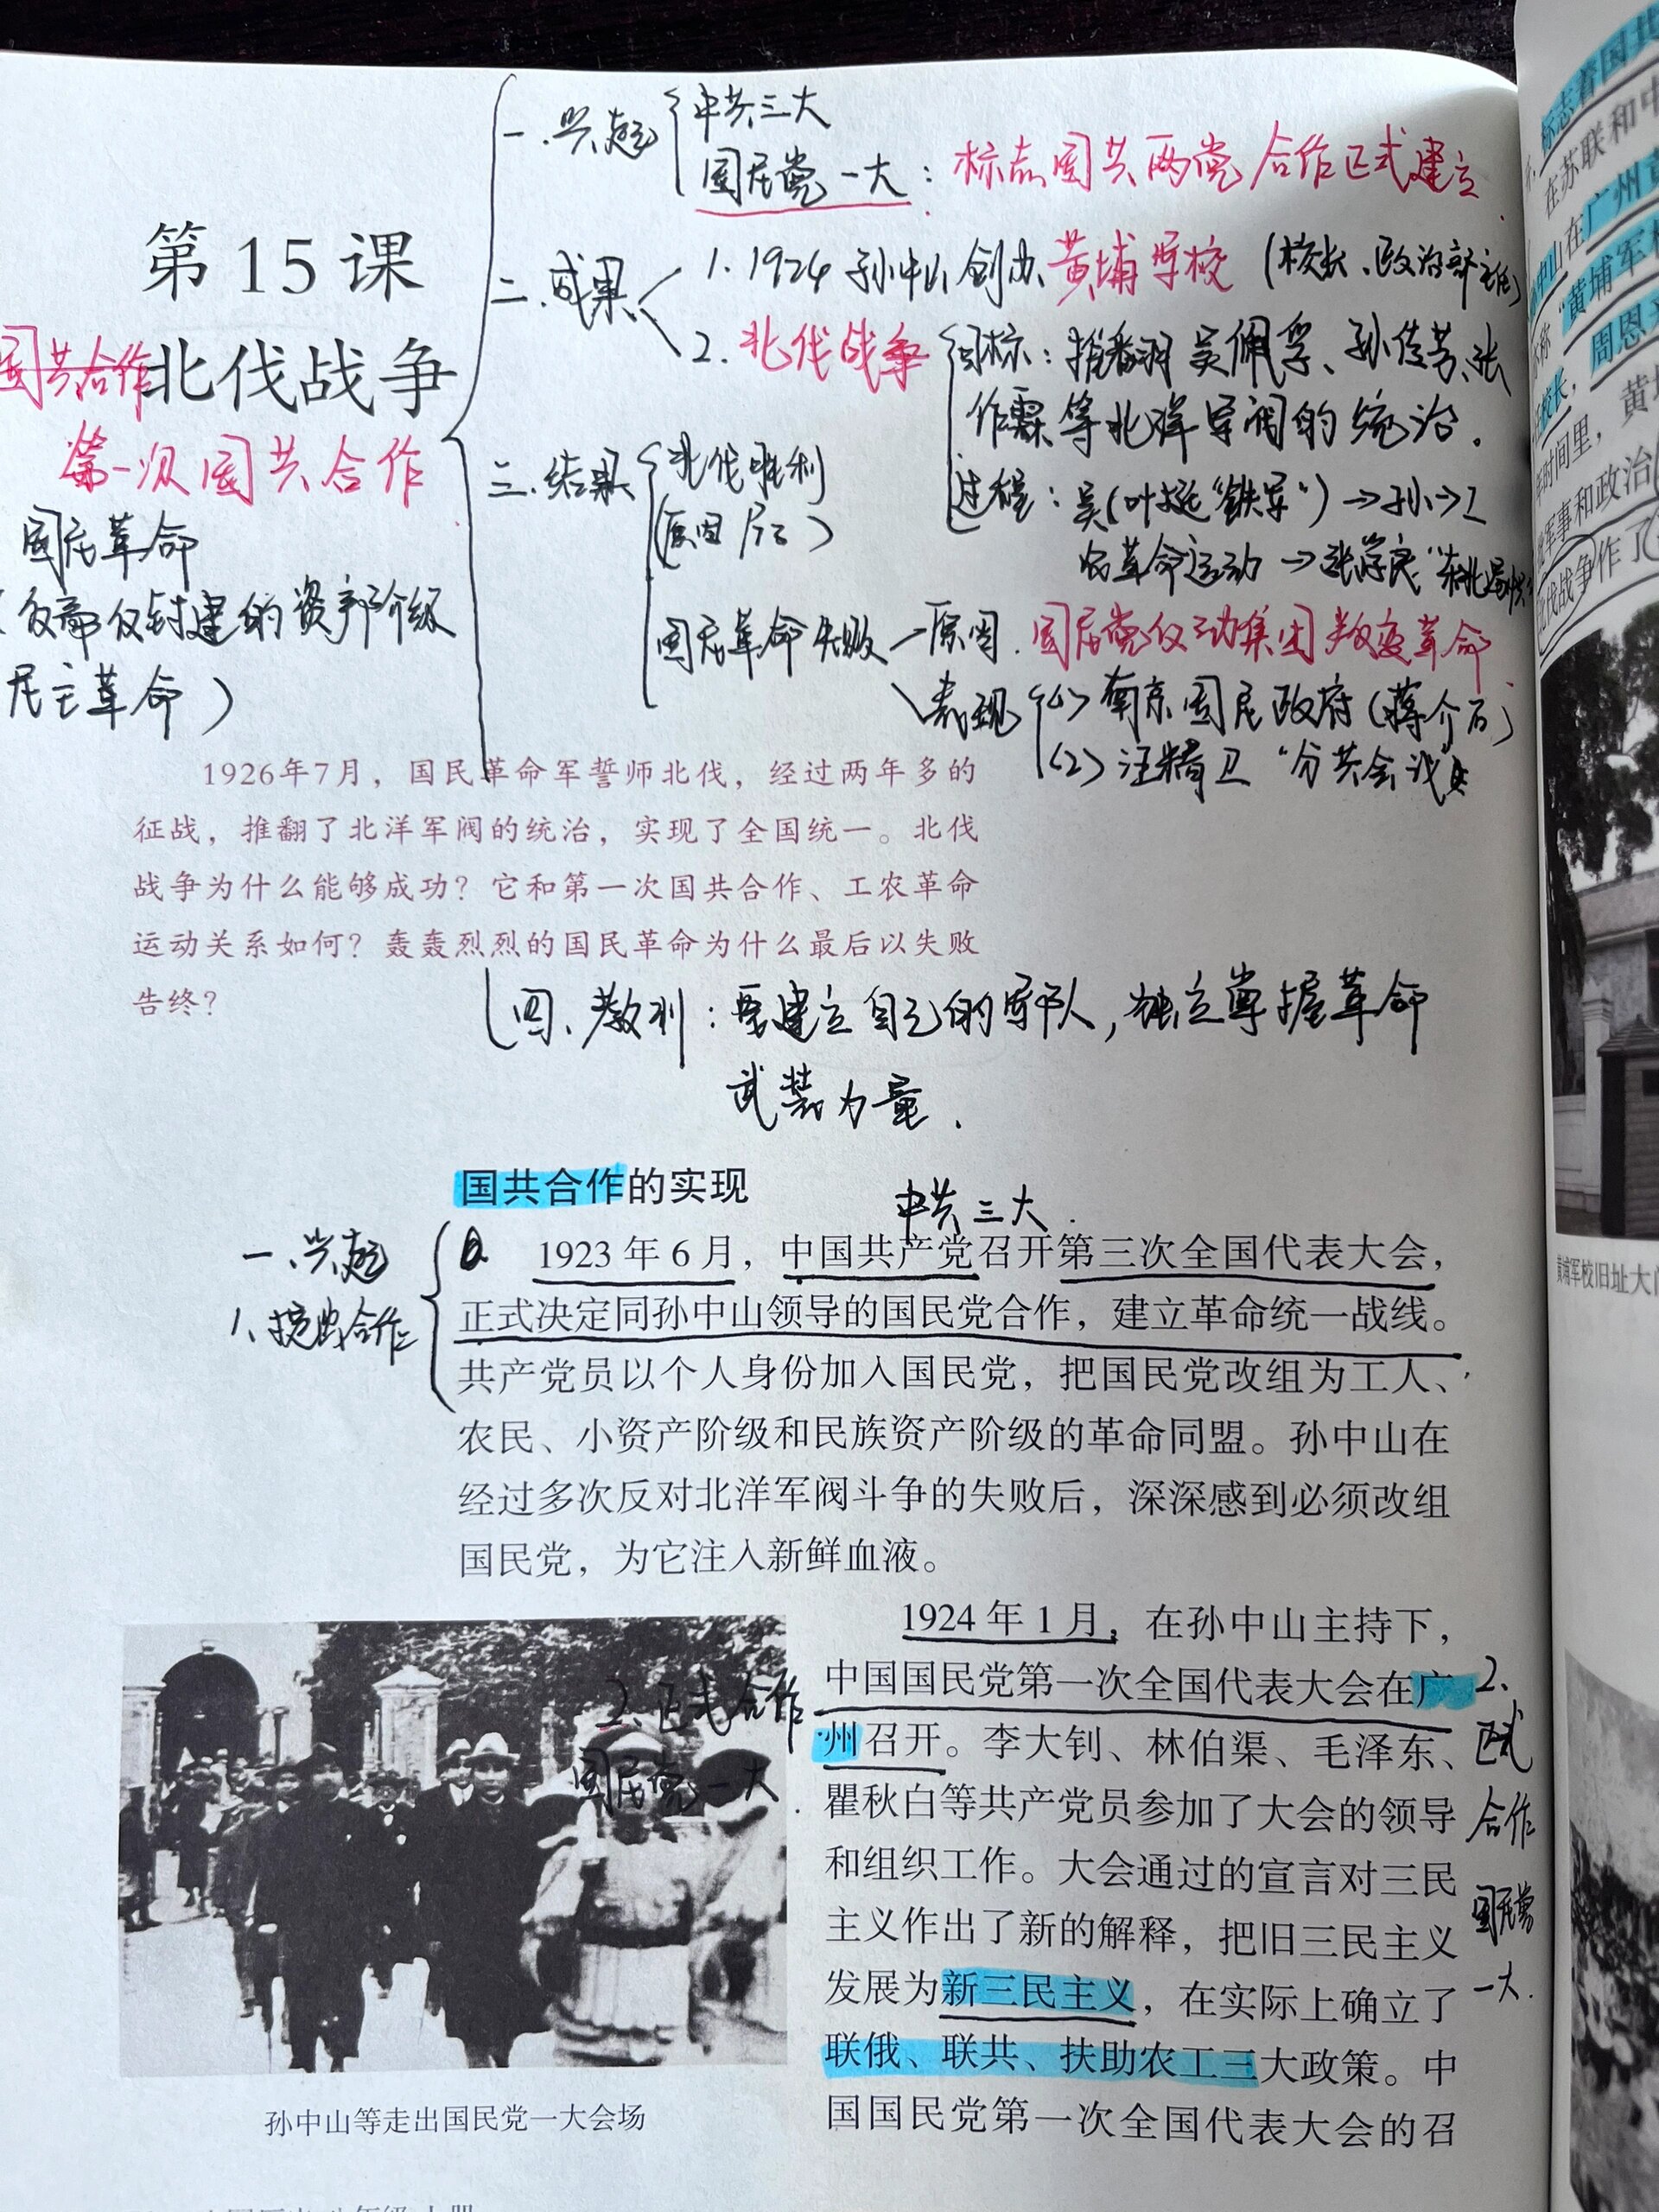 一.兴起
中共三大
国民党一大：标志国共两党合作正式建立.
第15课
二.成果
1.1924 孙中山创办黄埔学校（校长、政治部主任）
国共合作
北伐战争
2.北伐战争
目标：推翻 吴佩孚、孙传芳、张
作霖等北洋军阀的统治.
第一次国共合作.
三.结果
北伐胜利
（原因 ）
过程：吴（叶挺“铁军”）→孙→工
农革命运动→张学良“东北易帜”
国民革命
（反帝反封建的资产阶级
民主革命）
国民革命失败
原因.国民党反动集团叛变革命.
表现
(1)南京国民政府（蒋介石）
(2)汪精卫“分共会议”
1926年7月，国民革命军誓师北伐，经过两年多的
征战，推翻了北洋军阀的统治，实现了全国统一。北伐
战争为什么能够成功？它和第一次国共合作、工农革命
运动关系如何？轰轰烈烈的国民革命为什么最后以失败
告终？
四、教训：要建立自己的军队，独立掌握革命
武装力量.
国共合作的实现
中共三大.
一、兴起
1、提出合作
1923年6月，中国共产党召开第三次全国代表大会，
正式决定同孙中山领导的国民党合作，建立革命统一战线。
共产党员以个人身份加入国民党，把国民党改组为工人、
农民、小资产阶级和民族资产阶级的革命同盟。孙中山在
经过多次反对北洋军阀斗争的失败后，深深感到必须改组
国民党，为它注入新鲜血液。
2.正式合作
国民党一大.
1924年1月，在孙中山主持下，
中国国民党第一次全国代表大会在广
州召开。李大钊、林伯渠、毛泽东、
瞿秋白等共产党员参加了大会的领导
和组织工作。大会通过的宣言对三民
主义作出了新的解释，把旧三民主义
发展为新三民主义，在实际上确立了
联俄、联共、扶助农工三大政策。中
国国民党第一次全国代表大会的召
2.
正式
合作
国民党
一大.
孙中山等走出国民党一大会场
标志着国共
在苏联和中
中山在广州黄
“黄埔军校
校长，周恩来
年时间里，黄埔
军事和政治
北伐战争作了
黄埔军校旧址大门